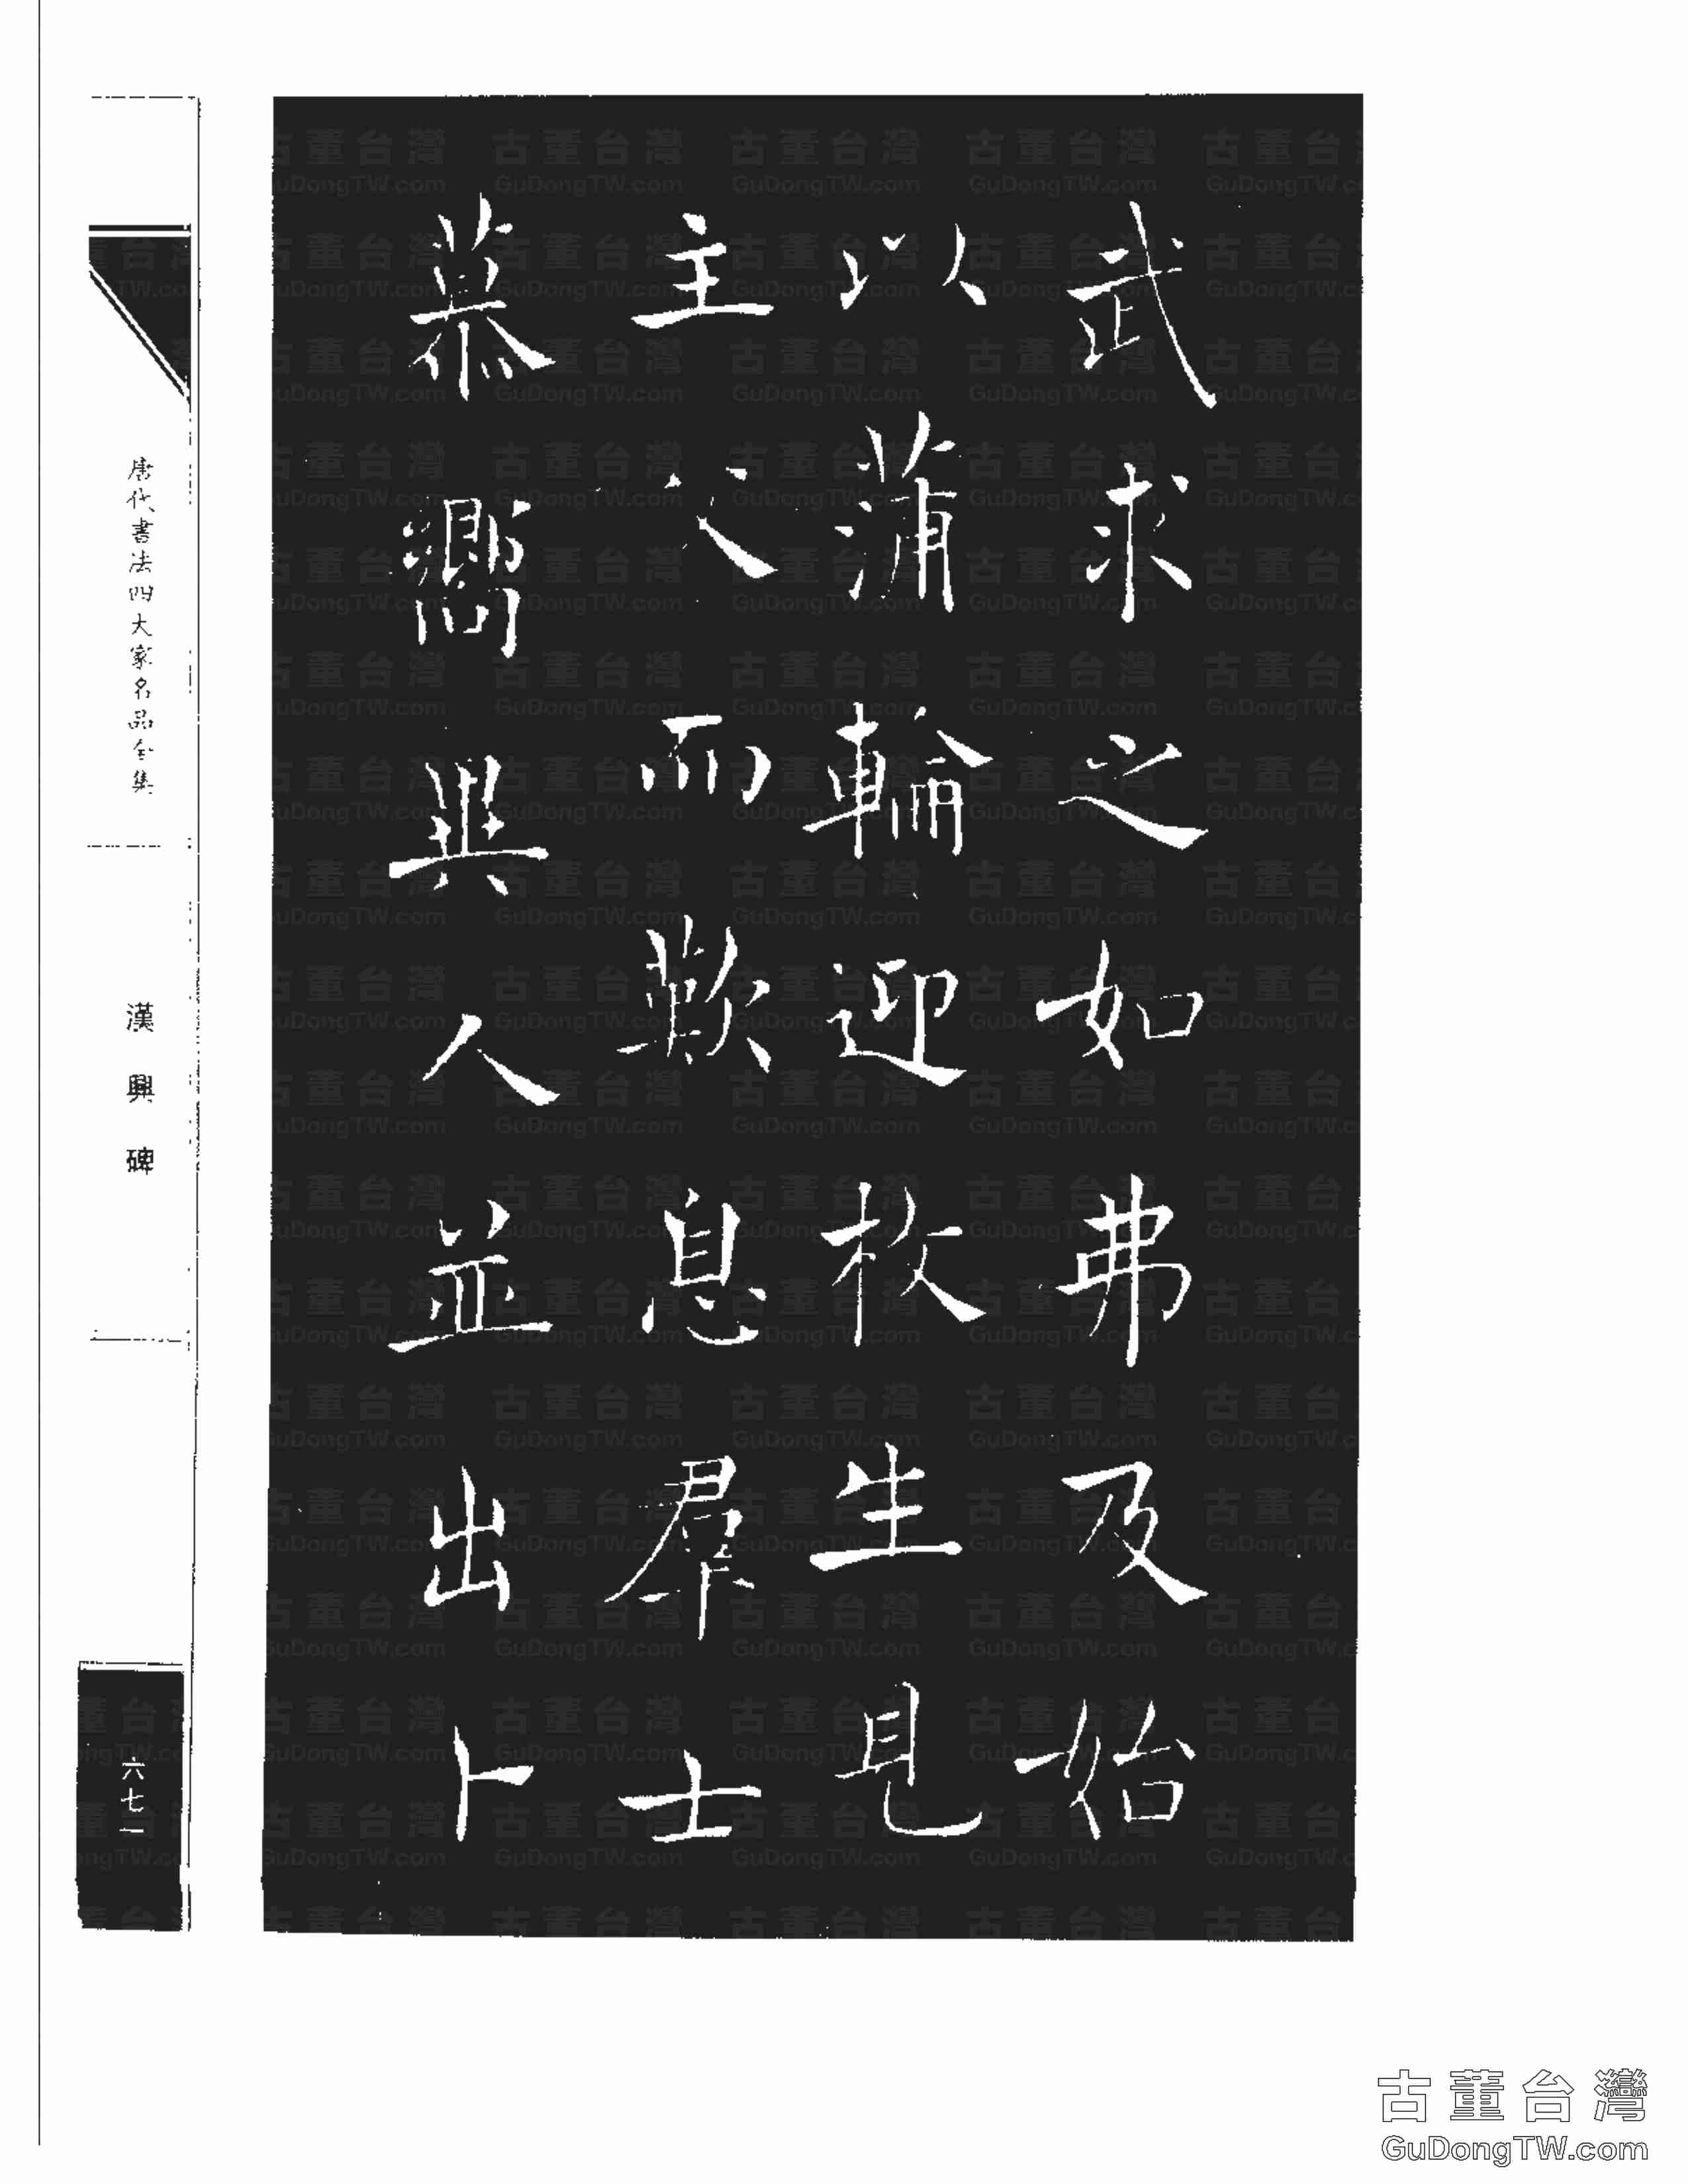 武求之如弗及始
以蒲輪迎枚生見
主父而歎息羣士
慕嚮異人並出卜
唐代書法四大家名品全集
漢興碑
六七一
古董台灣
GuDongTW.com